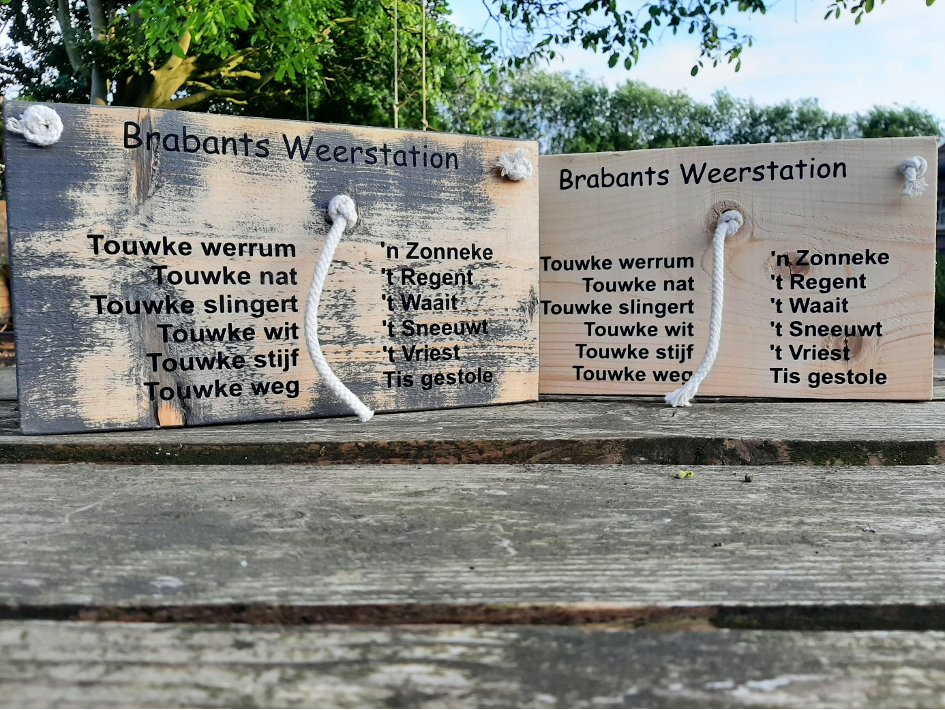 Brabants Weerstation
Touwke werrum 'n Zonneke
Touwke nat 't Regent
Touwke slingert 't Waait
Touwke wit 't Sneeuwt
Touwke stijf 't Vriest
Touwke weg Tis gestole
Brabants Weerstation
Touwke werrum 'n Zonneke
Touwke nat 't Regent
Touwke slingert 't Waait
Touwke wit 't Sneeuwt
Touwke stijf 't Vriest
Touwke weg Tis gestole